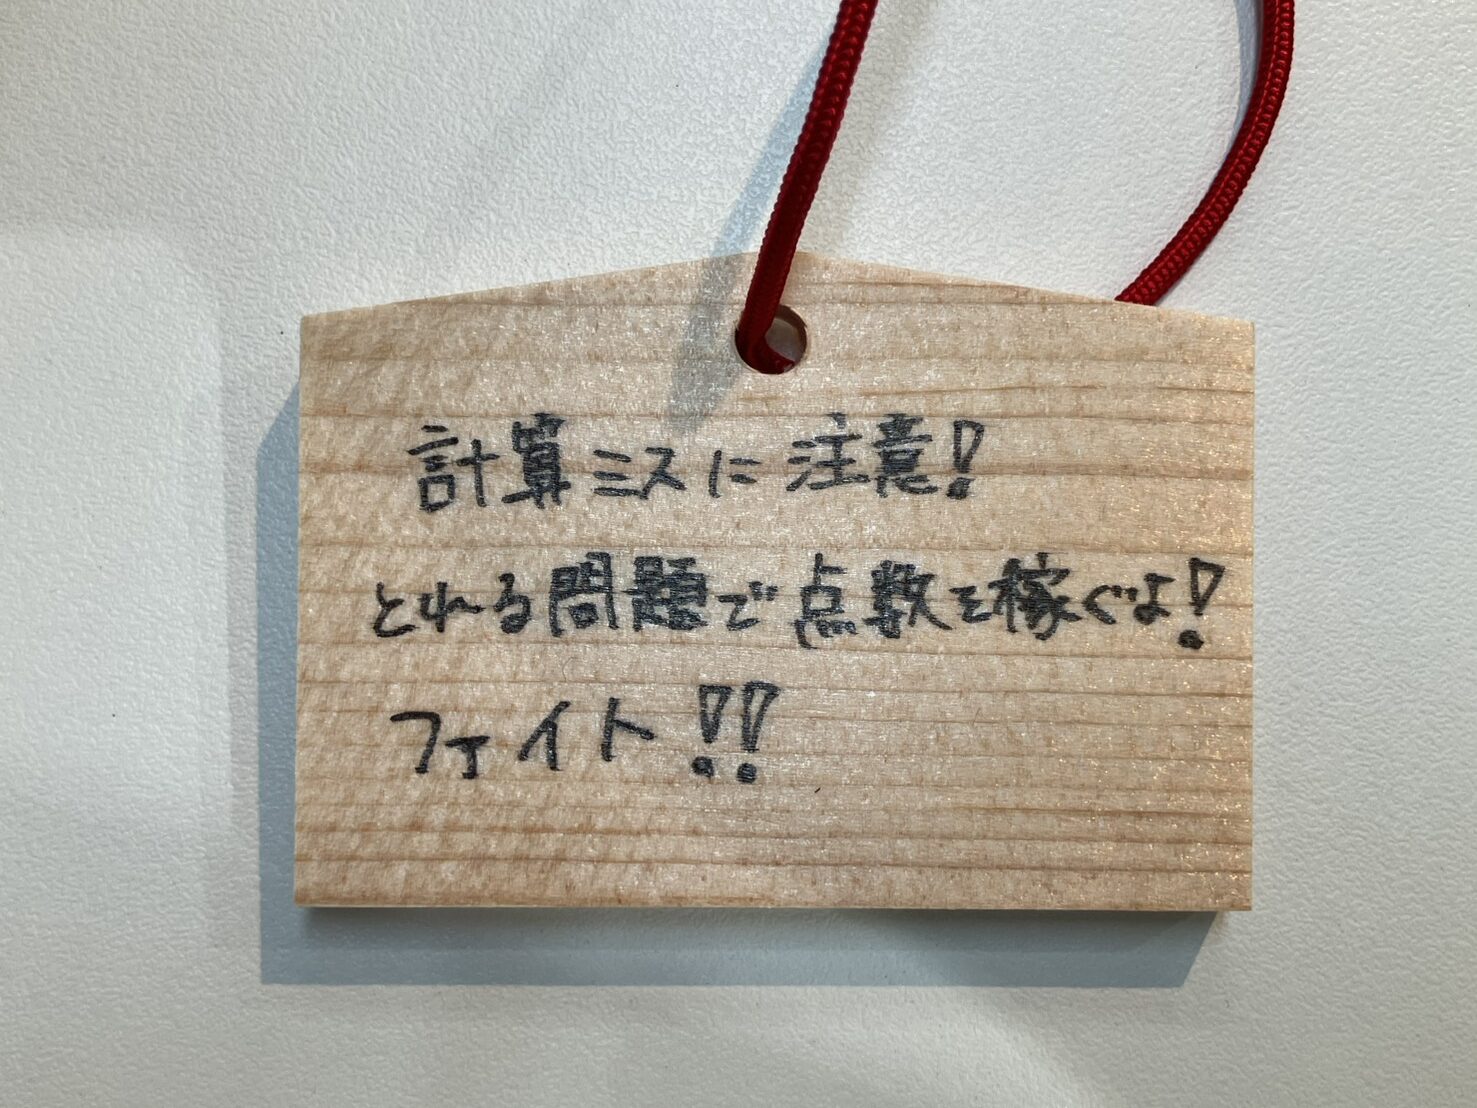 計算ミスに注意!
とれる問題で点数を稼ぐよ!
ファイト!!